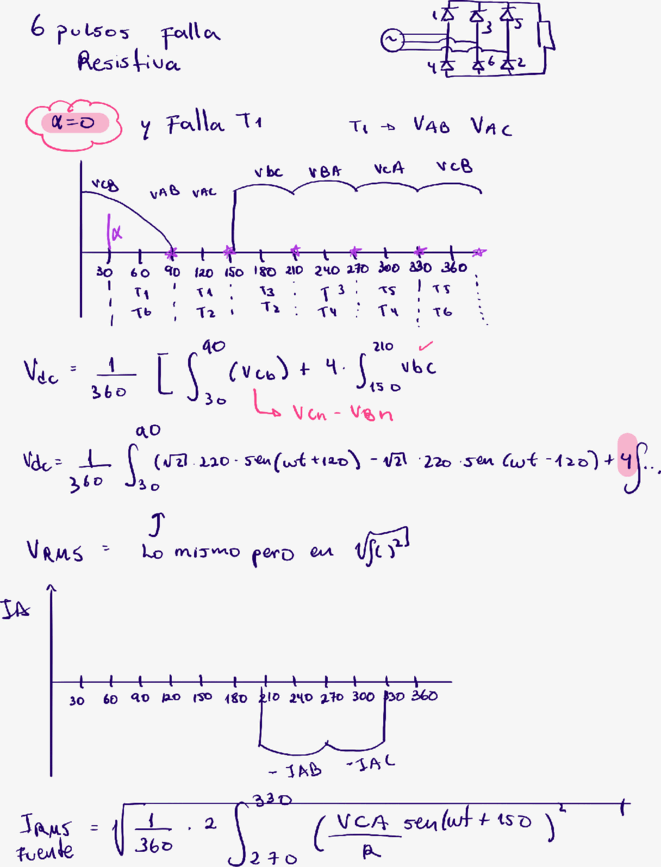 6 pulsos Falla
Resistiva
1 3 5
4 6 2
α=0 y Falla T1 T1 → VAB VAC
VCB VAB VAC Vbc VBA VCA VCB
α
30 60 90 120 150 180 210 240 270 300 330 360
T1 T1 T3 T3 T5 T5
T6 T2 T2 T4 T4 T6
Vdc = 1/360 [ ∫_30^90 (Vcb) + 4 · ∫_150^210 Vbc ✓
↳ Vcn - VBn
Vdc = 1/360 ∫_30^90 (√2 · 220 · sen(wt + 120) - √2 · 220 · sen (wt - 120) + 4∫...
VRMS = Lo mismo pero en √∫( )²
IA
30 60 90 120 150 180 210 240 270 300 330 360
- IAB - IAC
IRMS Fuente = √ 1/360 · 2 ∫_270^330 (VCA/R sen(wt + 150)²